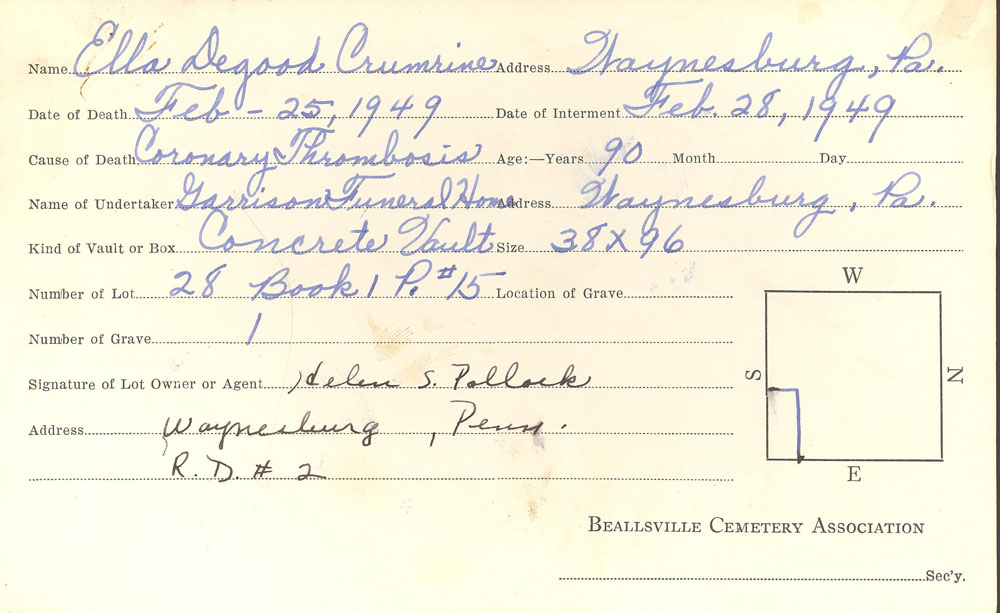 Name Ella Degood Crumrine Address Waynesburg, Pa.
Date of Death Feb - 25, 1949 Date of Interment Feb. 28, 1949
Cause of Death Coronary Thrombosis Age:—Years 90 Month Day
Name of Undertaker Garrison Funeral Home Address Waynesburg, Pa.
Kind of Vault or Box Concrete Vault Size 38 x 96
Number of Lot 28 Book 1 P. #15 Location of Grave
Number of Grave 1
Signature of Lot Owner or Agent Helen S. Pollock
Address Waynesburg, Penn.
R. D. # 2
W
S
N
E
BEALLSVILLE CEMETERY ASSOCIATION
Sec'y.